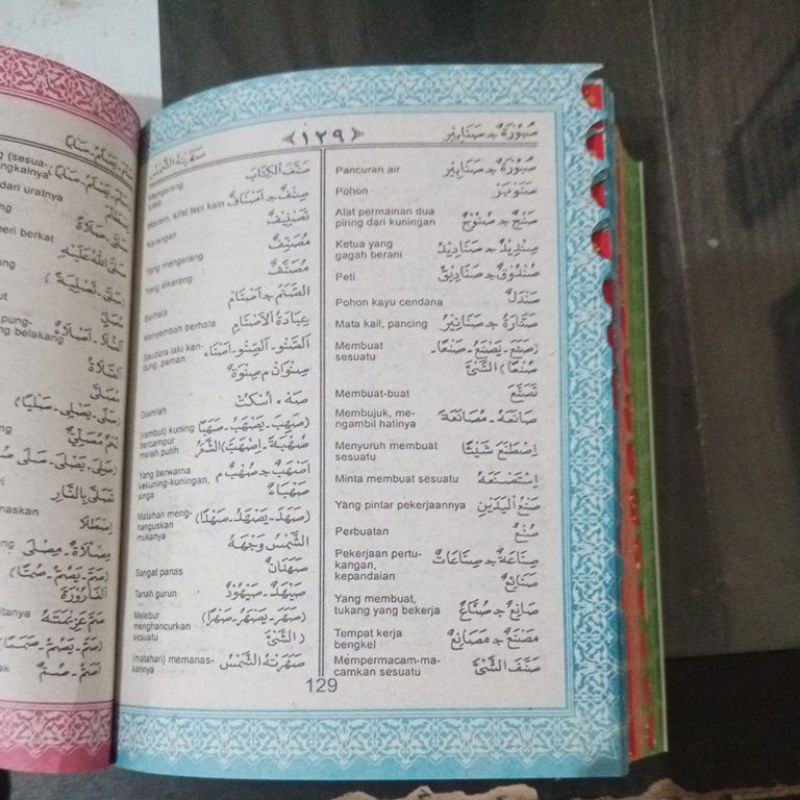 صُنْبُوْرَةٌ ج صَنَابِيْرُ
١٢٩
صَهَرَتْهُ الشَّمْسُ
Pancuran air صُنْبُوْرَةٌ ج صَنَابِيْرُ
Pohon صَنَوْبَرٌ
Alat permainan dua صَنْجٌ ج صُنُوْجٌ
piring dari kuningan
Ketua yang صِنْدِيْدٌ ج صَنَادِيْدُ
gagah berani
Peti صُنْدُوْقٌ ج صَنَادِيْقُ
Pohon kayu cendana صَنْدَلٌ
Mata kail, pancing صِنَّارَةٌ ج صَنَانِيْرُ
Membuat (صَنَعَ ـ يَصْنَعُ ـ صَنْعًا ـ
sesuatu صُنْعًا) الشَّىْءَ
Membuat-buat تَصَنَّعَ
Membujuk, me- صَانَعَهُ ـ مُصَانَعَةً
ngambil hatinya
Menyuruh membuat اِصْطَنَعَ شَيْئًا
sesuatu
Minta membuat sesuatu اِسْتَصْنَعَهُ
Yang pintar pekerjaannya صَنَعُ الْيَدَيْنِ
Perbuatan صُنْعٌ
Pekerjaan pertu- صِنَاعَةٌ ج صِنَاعَاتٌ
kangan,
kepandaian صَنَائِعُ
Yang membuat, صَانِعٌ ج صُنَّاعٌ
tukang yang bekerja
Tempat kerja مَصْنَعٌ ج مَصَانِعُ
bengkel
Mempermacam-ma- صَنَّفَ الشَّىْءَ
camkan sesuatu
Mengarang صَنَّفَ الْكِتَابَ
kitab
Macam, sifat tepi kain صِنْفٌ ج اَصْنَافٌ
Karangan تَصْنِيْفٌ
Yang mengarang مُصَنِّفٌ
Yang dikarang مُصَنَّفٌ
Berhala الصَّنَمُ ج اَصْنَامٌ
Menyembah berhala عِبَادَةُ الْاَصْنَامِ
Saudara laki kan- الصَّنْوُ ـ الصِّنْوُ ـ اَصْنَاءٌ
dung, paman صِنْوَانٌ م صِنْوَةٌ
Diamlah صَهْ ـ اُسْكُتْ
(rambut) kuning (صَهِبَ ـ يَصْهَبُ ـ صَهَبًا
bercampur
merah putih صُهْبَةً ـ اِصْهَبَّ) الشَّعْرُ
Yang berwarna اَصْهَبُ ج صُهْبٌ م
kekuning-kuningan,
singa صَهْبَاءُ
Matahari meng- (صَهَدَ ـ يَصْهَدُ ـ صَهْدًا)
hanguskan
mukanya الشَّمْسُ وَجْهَهُ
Sangat panas صَهَدَانٌ
Tanah gurun صَهْيَدٌ ـ صَيْهُوْدٌ
Melebur (صَهَرَ ـ يَصْهَرُ ـ صَهْرًا)
menghancurkan
sesuatu الشَّىْءَ
(matahari) memanas- صَهَرَتْهُ الشَّمْسُ
kannya
129
(sesua-
dari uratnya
peri berkat صَلَّى اللهُ عَلَيْهِ
belakang
صَلَّى ـ صَلَاةً
مُصَلَّى
تَصَلَّى بِالنَّارِ